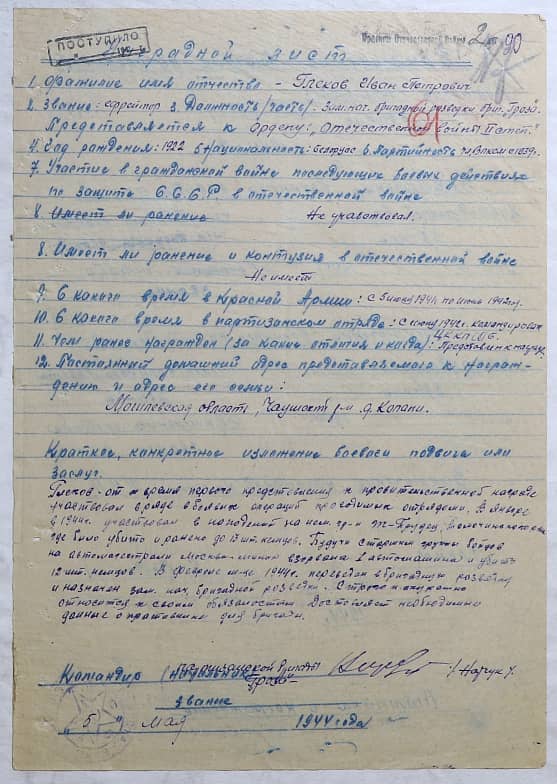 ПОСТУПИЛО
194 г.
Орденом Отечественной Войны 2 ст
90
Наградной лист
1. Фамилие имя отчество – Песков Иван Петрович
2. Звание: ефрейтор 3. Должность /часть/ - Зам. нач. бригадной разведки бриг. Гроза.
Представляется к Ордену: „Отечественной Войны II степ."
4. Год рождения: 1922 5. Национальность: белорус 6. Партийность чл. ВЛКСМ с 1939г.
7. Участие в гражданской войне последующих боевых действиях
по защите С.С.С.Р. в отечественной войне
8. Имеет ли ранение Не участвовал.
8. Имеет ли ранение и контузия в отечественной войне
Не имеет
9. С какаго время в Красной Армии: с 5 июня 1941 по июнь 1942г.
10. С какаго время в партизанском отряде: С июня 1942г. командирован
ЦККП/б/Б.
11. Чем ранее награжден (за какие отличия и когда): Представлен к награде
12. Постоянный домашний адрес представляемого к награж-
дению и адрес его семьи:
Могилевская область, Чаусский р-н д. Копани.
Краткое, конкретное изложение боевого подвига или
заслуг.
Песков – от время первого представления к правительственной награде
участвовал в ряде боевых операций проводимых отрядами. В январе
1944г. участвовал в нападении на нем. гр-н
где было убито и ранено до 13 шт. немцев. Будучи старшим группы бойцов
на автомагистрали Москва-Минск взорвана 1 автомашина и убито
12 шт. немцев. В феврале м-це 1944г. переведен в бригадную разведку
и назначен зам. нач. бригадной разведки. С
относится к своим обязаностям. Доставляет необходимые
данные о противнике для бригады.
Командир (начальник) партизанской бригады
„Гроза"
звание
„5" Мая 1944 года